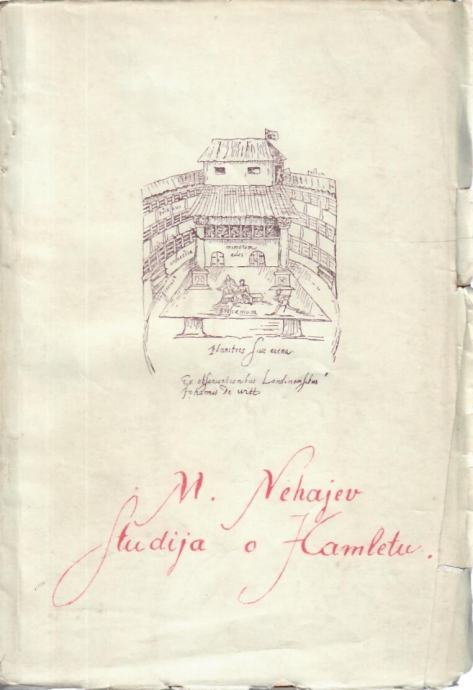 mimorum
ædes
proscænium
Planities sive arena
Ex observationibus Londinensibus
Johannis de witt
M. Nehajev
Studija o Hamletu.